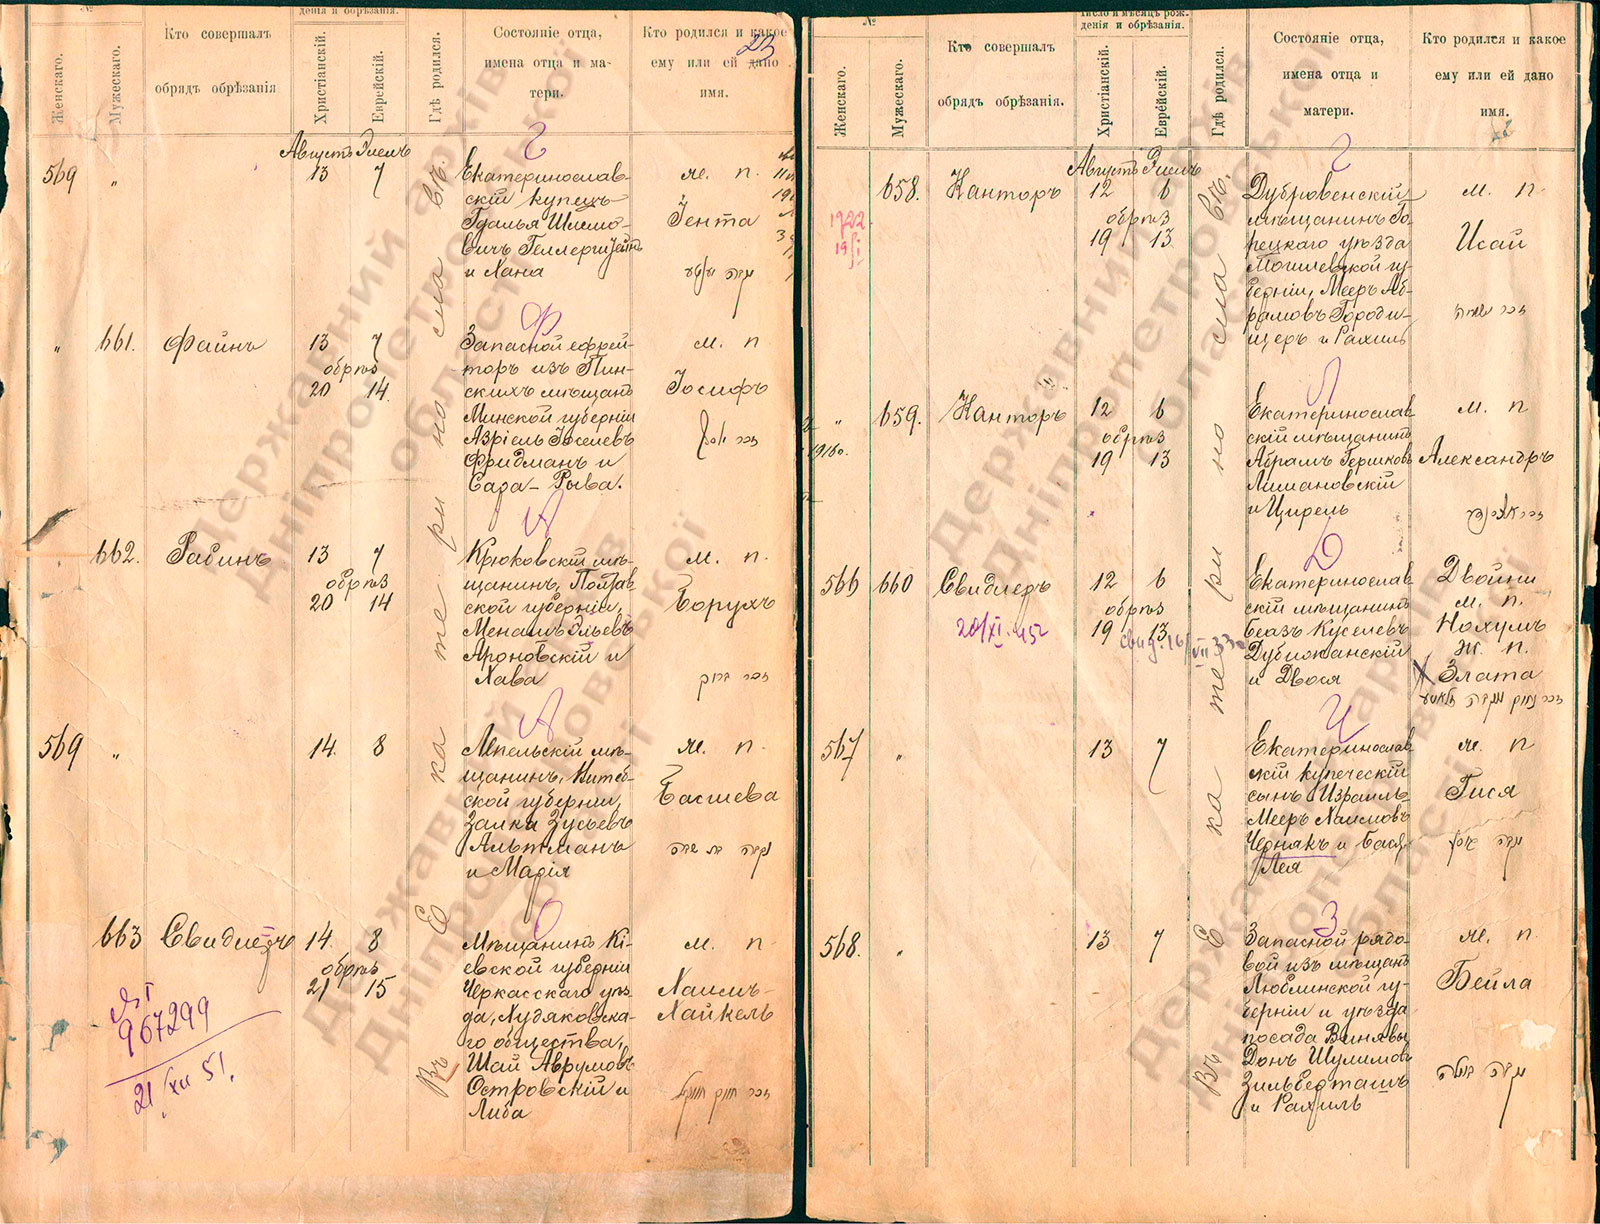 №
дения и обрѣзанія.
Женскаго.
Мужескаго.
Кто совершалъ
обрядъ обрѣзанія
Христіанскій.
Еврейскій.
Гдѣ родился.
Состояніе отца,
имена отца и ма-
тери.
Кто родился и какое
ему или ей дано
имя.
23
Августъ Элелъ
569 " 13 7
Екатеринослав-
скій купецъ
Гдалья Шлемо-
вичъ Геллерштейнъ
и Хана
ж. п.
Іента
" 661. Файнъ 13 7
обрѣз
20 14
Запасной ефрей-
торъ изъ Пин-
скихъ мѣщанъ
Минской губерніи
Азріель Іоселевъ
Фридманъ и
Сара-Рыва.
м. п
Іосифъ
זכר יוסף
662. Рабинъ 13 7
обрѣз
20 14
Крюковскій мѣ-
щанинъ, Полтав
ской губерніи,
Менашъ Эльевъ
Ароновскій и
Хава
м. п.
Борухъ
זכר ברוך
569 " 14. 8
Лепельскій мѣ-
щанинъ, Витеб-
ской губерніи,
Залка Зусьевъ
Альтманъ
и Марія
ж. п.
Басшева
נקבה בת שבע
663 Свидлеръ 14. 8
обрѣз
21 15
Мѣщанинъ Кі-
евской губерніи
Черкасскаго уѣз-
да, Худяковска-
го общества,
Шай Аврумовъ
Островскій и
Либа
м. п.
Хаимъ-
Хайкель
967299
21/XII 51.
Въ Екатеринославъ
№
Число и мѣсяцъ рож.
денія и обрѣзанія.
Женскаго.
Мужескаго.
Кто совершалъ
обрядъ обрѣзанія.
Христіанскій.
Еврейскій.
Гдѣ родился.
Состояніе отца,
имена отца и
матери.
Кто родился и какое
ему или ей дано
имя.
Августъ Элелъ
658. Канторъ 12 6
обрѣз
19 13
1922
19/I
Дубровенскій
мѣщанинъ Го-
рецкаго уѣзда
Могилевской гу-
берніи, Мееръ Аб-
рамовъ Городи-
щеръ и Рахиль
м. п
Исай
" 659. Канторъ 12 6
обрѣз
19 13
Екатеринослав
скій мѣщанинъ
Абрамъ Гершковъ
Лимановскій
и Цирель
м. п
Александръ
566 660 Свидлеръ 12 6
обрѣз
19 13
20/XI. 452
Екатеринослав
скій мѣщанинъ
Беазъ Куселевъ
Дубижанскій
и Двося
Двойни
м. п.
Нохумъ
ж. п.
Злата
567 " 13 7
Екатеринослав
скій купеческій
сынъ Израиль-
Мееръ Хаимовъ
Чернякъ и Бася-
Лея
ж. п
Гися
568. " 13 7
Запасной рядо-
вой изъ мѣщанъ
Люблинской гу-
берніи и уѣзда
посада Винявы
Донъ Шулимовъ
Зильберташъ
и Рахиль
ж. п.
Бейла
נקבה ביילה
Въ Екатеринославъ